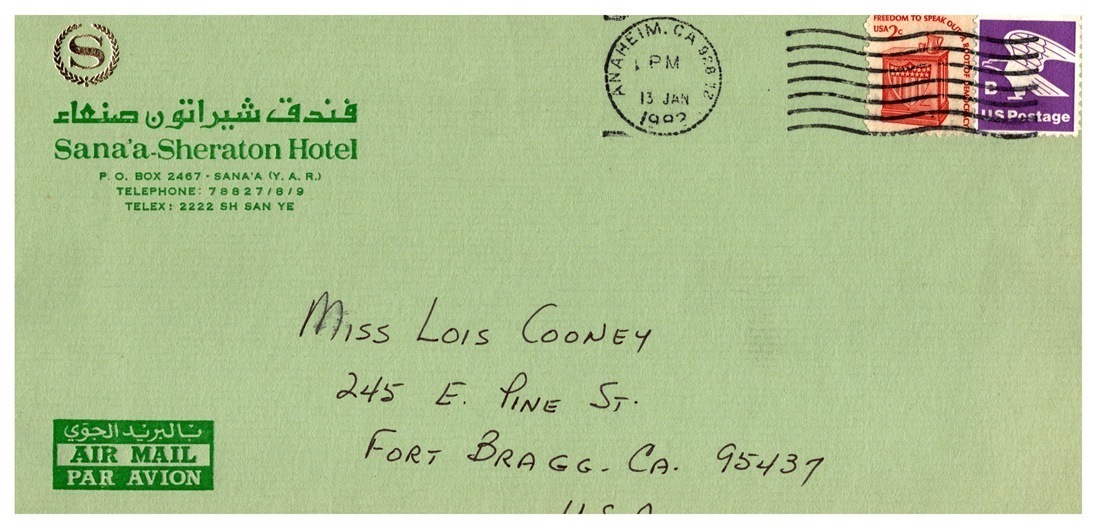 S
فندق شيراتون صنعاء
Sana'a-Sheraton Hotel
P. O. BOX 2467 - SANA'A (Y. A. R.)
TELEPHONE: 78827/8/9
TELEX: 2222 SH SAN YE
ANAHEIM, CA
PM
13 JAN
1982
FREEDOM TO SPEAK OUT A ROOT OF DEMOCRACY
USA 2c
US Postage
Miss Lois Cooney
245 E. Pine St.
Fort Bragg. Ca. 95437
U.S.A
بالبريد الجوّي
AIR MAIL
PAR AVION